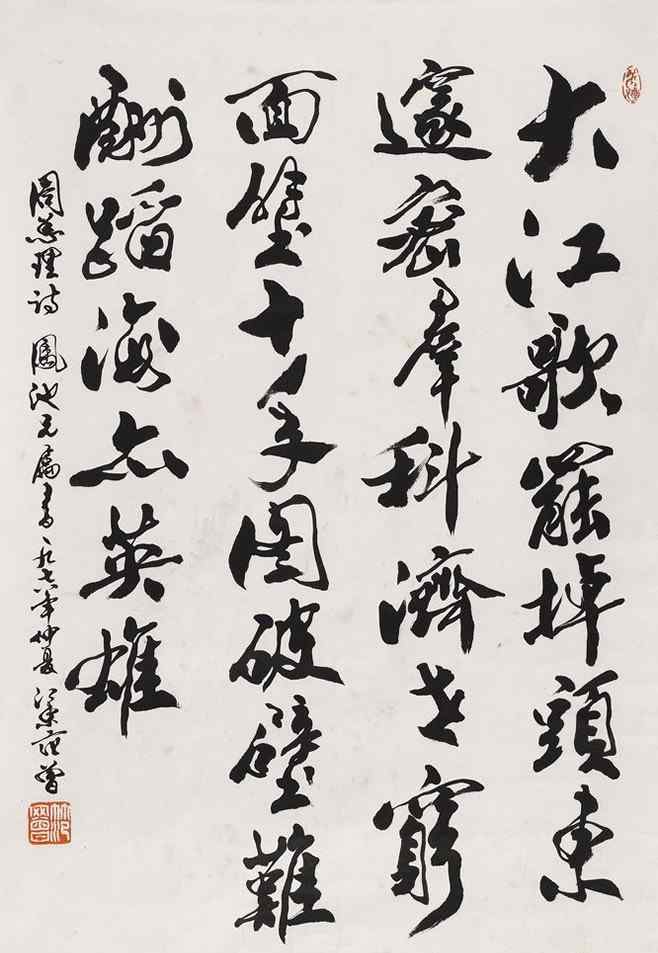 大江歌罷掉頭東
邃密羣科濟世窮
面壁十年圖破壁難
酬蹈海亦英雄
周總理詩 鳳池兄屬書 一九七八年仲夏 江東范曾